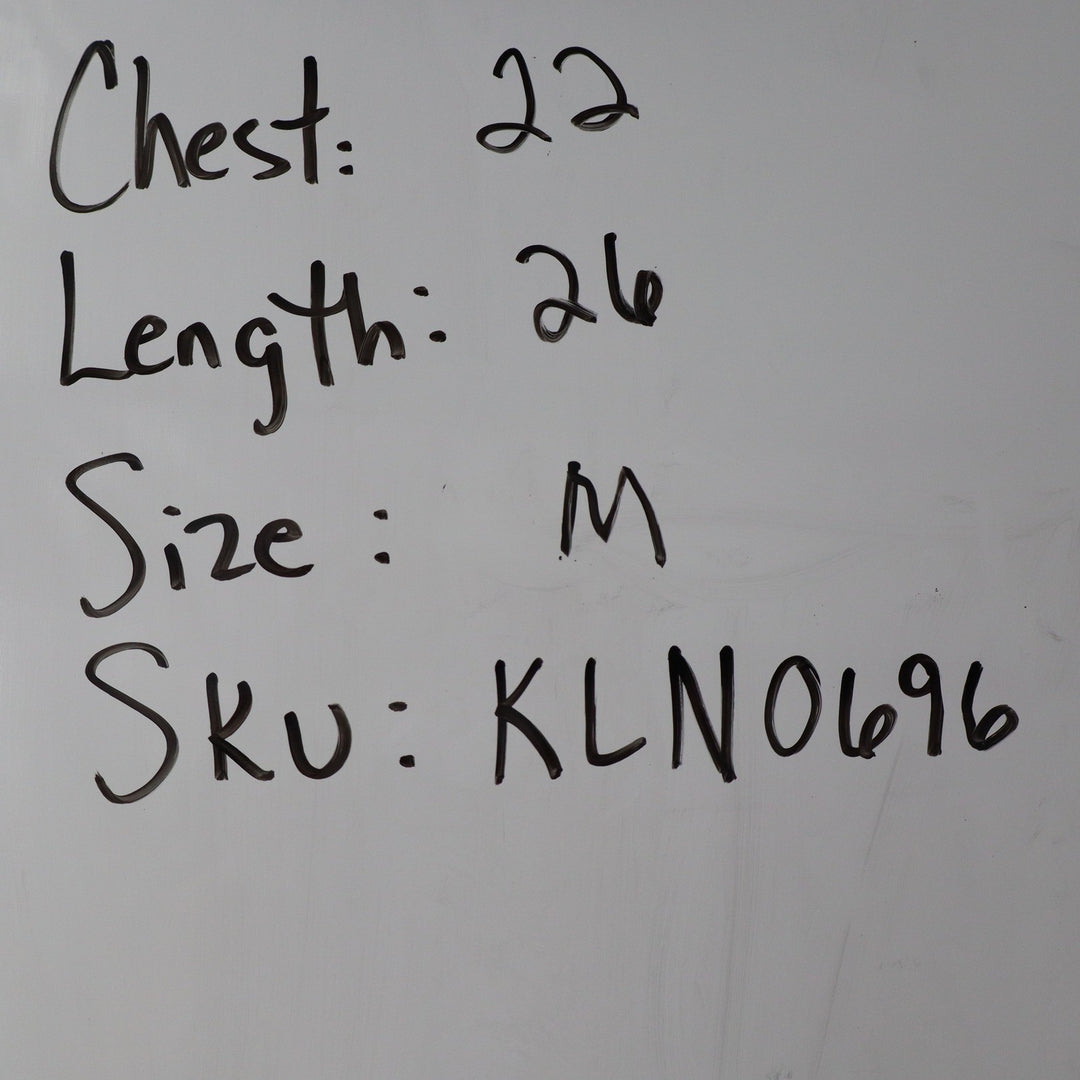 Chest: 22
Length: 26
Size: M
SKU: KLN0696